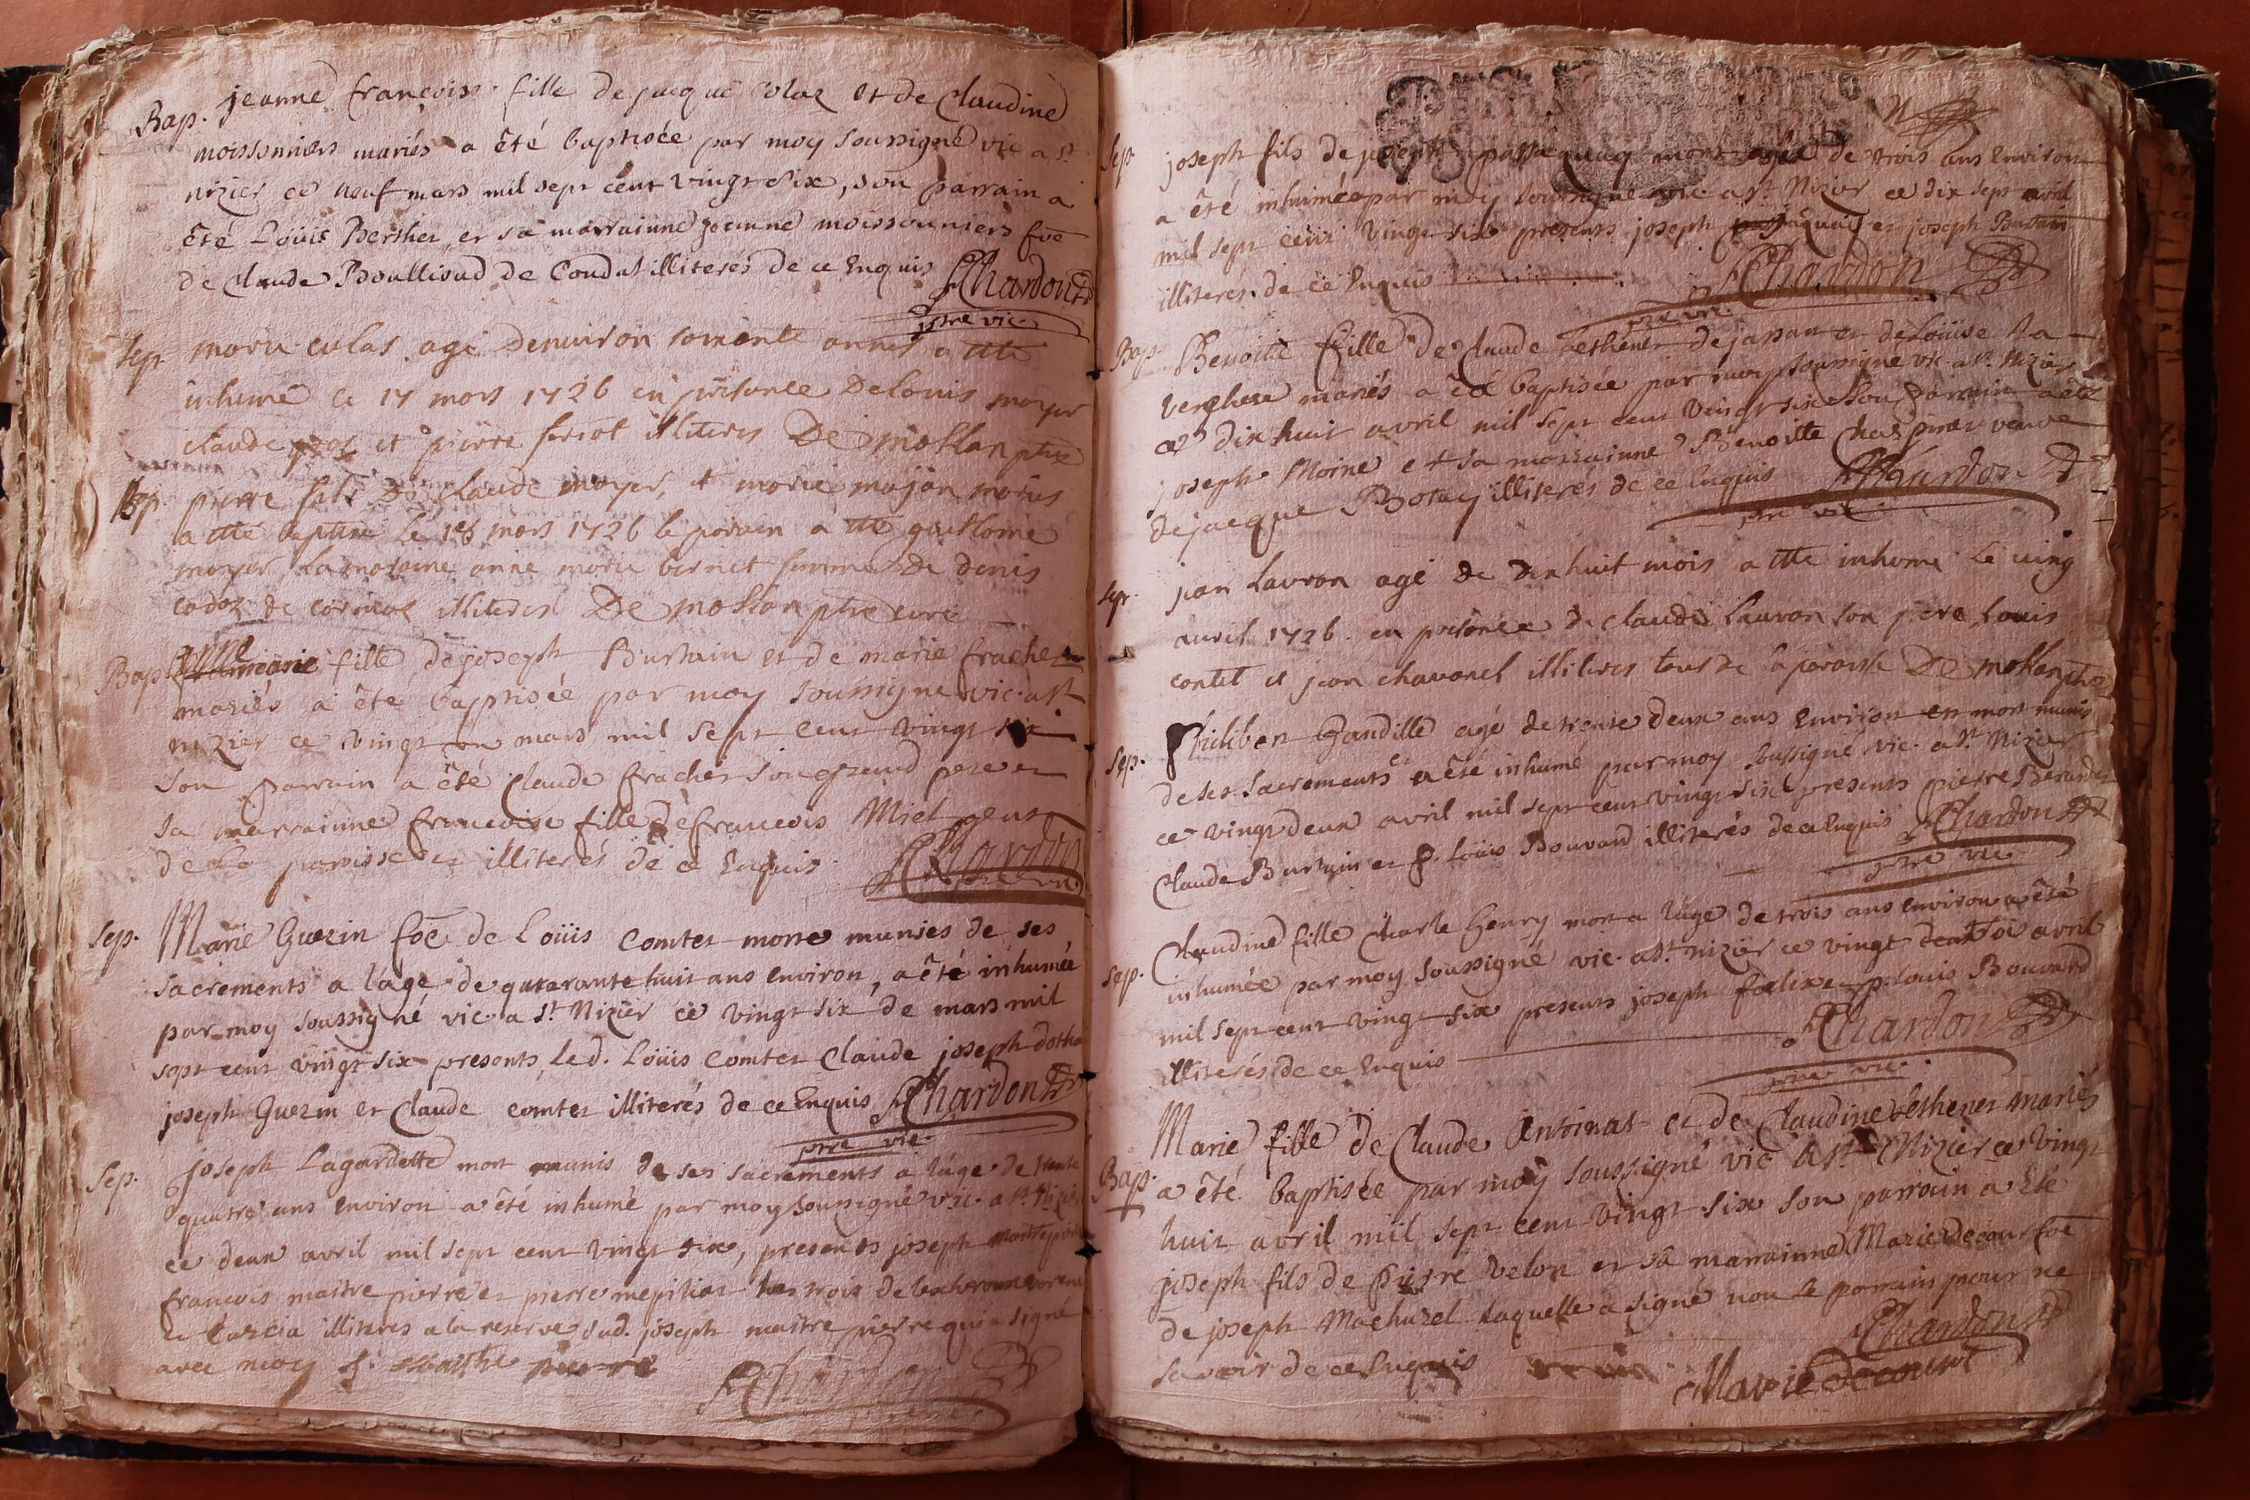 Bap. jeanne francoise fille de jacque Colas et de Claudine
moissonniers mariés a été baptisée par moy soussigné vic a st
nizier ce neuf mars mil sept cent vingt six, son parrain a
été Loüis Berthet et sa marrainne jeanne moissonniers foe
de Claude Boullioud de Condal illiterés de ce Enquis Chardon
ptre vic.
sep marie culas agé denuiron soixante annés a tté
inhumé ce 17 mars 1726 en présence De Louis moyer
claude et pierre illiteres De mollan ptre
Bap. pierre fils de Claude moyer, et marie majon mariés
a tté baptisé le mars 1726 le parain a tté guillome
moyer la maraine anne marie bernet femme de denis
cadoz de illiteres De mollan ptre curé
Bap marie fille de joseph Burtain et de marie frachet
mariés a été baptisée par moy soussigné vic. a st
nizier ce vingt un mars mil sept cent vingt six
son parrain a été Claude frachet son grand pere et
sa marrainne francoise fille de francois
de la paroisse et illiterés de ce Enquis Chardon
ptre vic.
sep. Marie Guerin foe de Loüis Comtet morte munies de ses
sacrements a l'age de quarante huit ans environ, a été inhumée
par moy soussigné vic. a st. Nizier ce vingt six de mars mil
sept cent vingt six presents, led. Loüis Comtet Claude joseph
joseph Guerin et Claude comtet illiterés de ce Enquis Chardon
ptre vic.
Sep. joseph Lagardette mort munis de ses sacrements a l'age de trente
quatre ans environ a été inhumé par moy soussigné vic. a st. Nizier
ce deux avril mil sept cent vingt six, presents joseph
francois maitre pierre et pierre les trois de
et illiteres a la reserve dud. joseph maitre pierre qui a signé
avec moy j. maitre pierre Chardon
Sep. joseph fils de joseph mort agé de trois ans environ
a été inhumée par moy soussigné vic a st. Nizier ce dix sept avril
mil sept cent vingt six presents joseph et joseph Burtain
illiterés de ce Enquis Chardon
ptre vic.
Bap. Benoite fille de Claude Vethenet de japan et de Loüise La
verchere mariés a été baptisée par moy soussigné vic. a st. Nizier
ce dix huit avril mil sept cent vingt six Son parrain a été
joseph Moine et sa marrainne Benoitte veuve
de jacque Borey illiterés de ce Enquis Chardon
ptre vic.
Sep. jean Lauron agé de dixhuit mois a tté inhumé le ving
auril 1726. en présence de claude Lauron son pere Louis
contet et jean chavanel illiteres tous de la paroisse De mollan ptre
Sep. Philibert Gandille agé de trente deux ans environ et mort munis
de ses sacrements a été inhumé par moy soussigné vic. a st. Nizier
ce vingt deux avril mil sept cent vingt six presents pierre
Claude Burtain et p. Loüis Bouvard illiterés de ce Enquis Chardon
ptre vic.
Sep. Claudine fille Charle henry mort a l'age de trois ans environ a été
inhumée par moy soussigné vic. a st. nizier ce vingt avril
mil sept cent vingt six presents joseph foelix et p. Loüis Bouvard
illiterés de ce Enquis Chardon
ptre vic.
Bap. Marie fille de Claude Antoinat et de Claudine Vethenet mariés
a été baptisée par moy soussigné vic a st. Nizier ce vingt
huit avril mil sept cent vingt six son parrain a été
joseph fils de Pierre Velon et sa marrainne Marie Decour foe
de joseph Machurel laquelle a signé non le parrain pour ne
savoir de ce Enquis Chardon
Marie Decourt